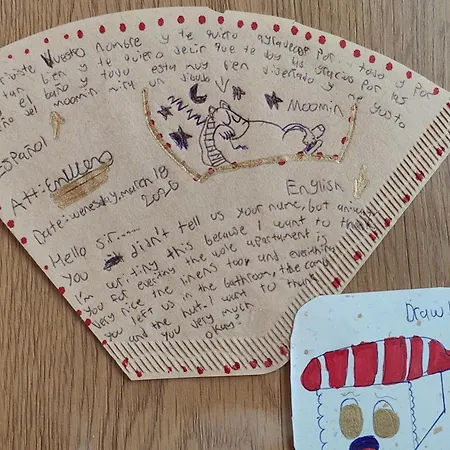 Vuestro nombre y te quiero agradecer por todo y por
tan bien y te quiero decir que te doy las gracias por las
el baño y todo esta muy bien diseñado y me gusto
del moomin mira un dibujo
Moomin
Español
Att:
Date: wenesday, march 18
2026
English
Hello sir.....
You didn't tell us your name, but
I'm writing this because I want to thank
you for everthing the wole apartament is
very nice the linens too and everything
you left us in the bathroom, the
and the hut. I want to thank
you very much
okay?
Draw